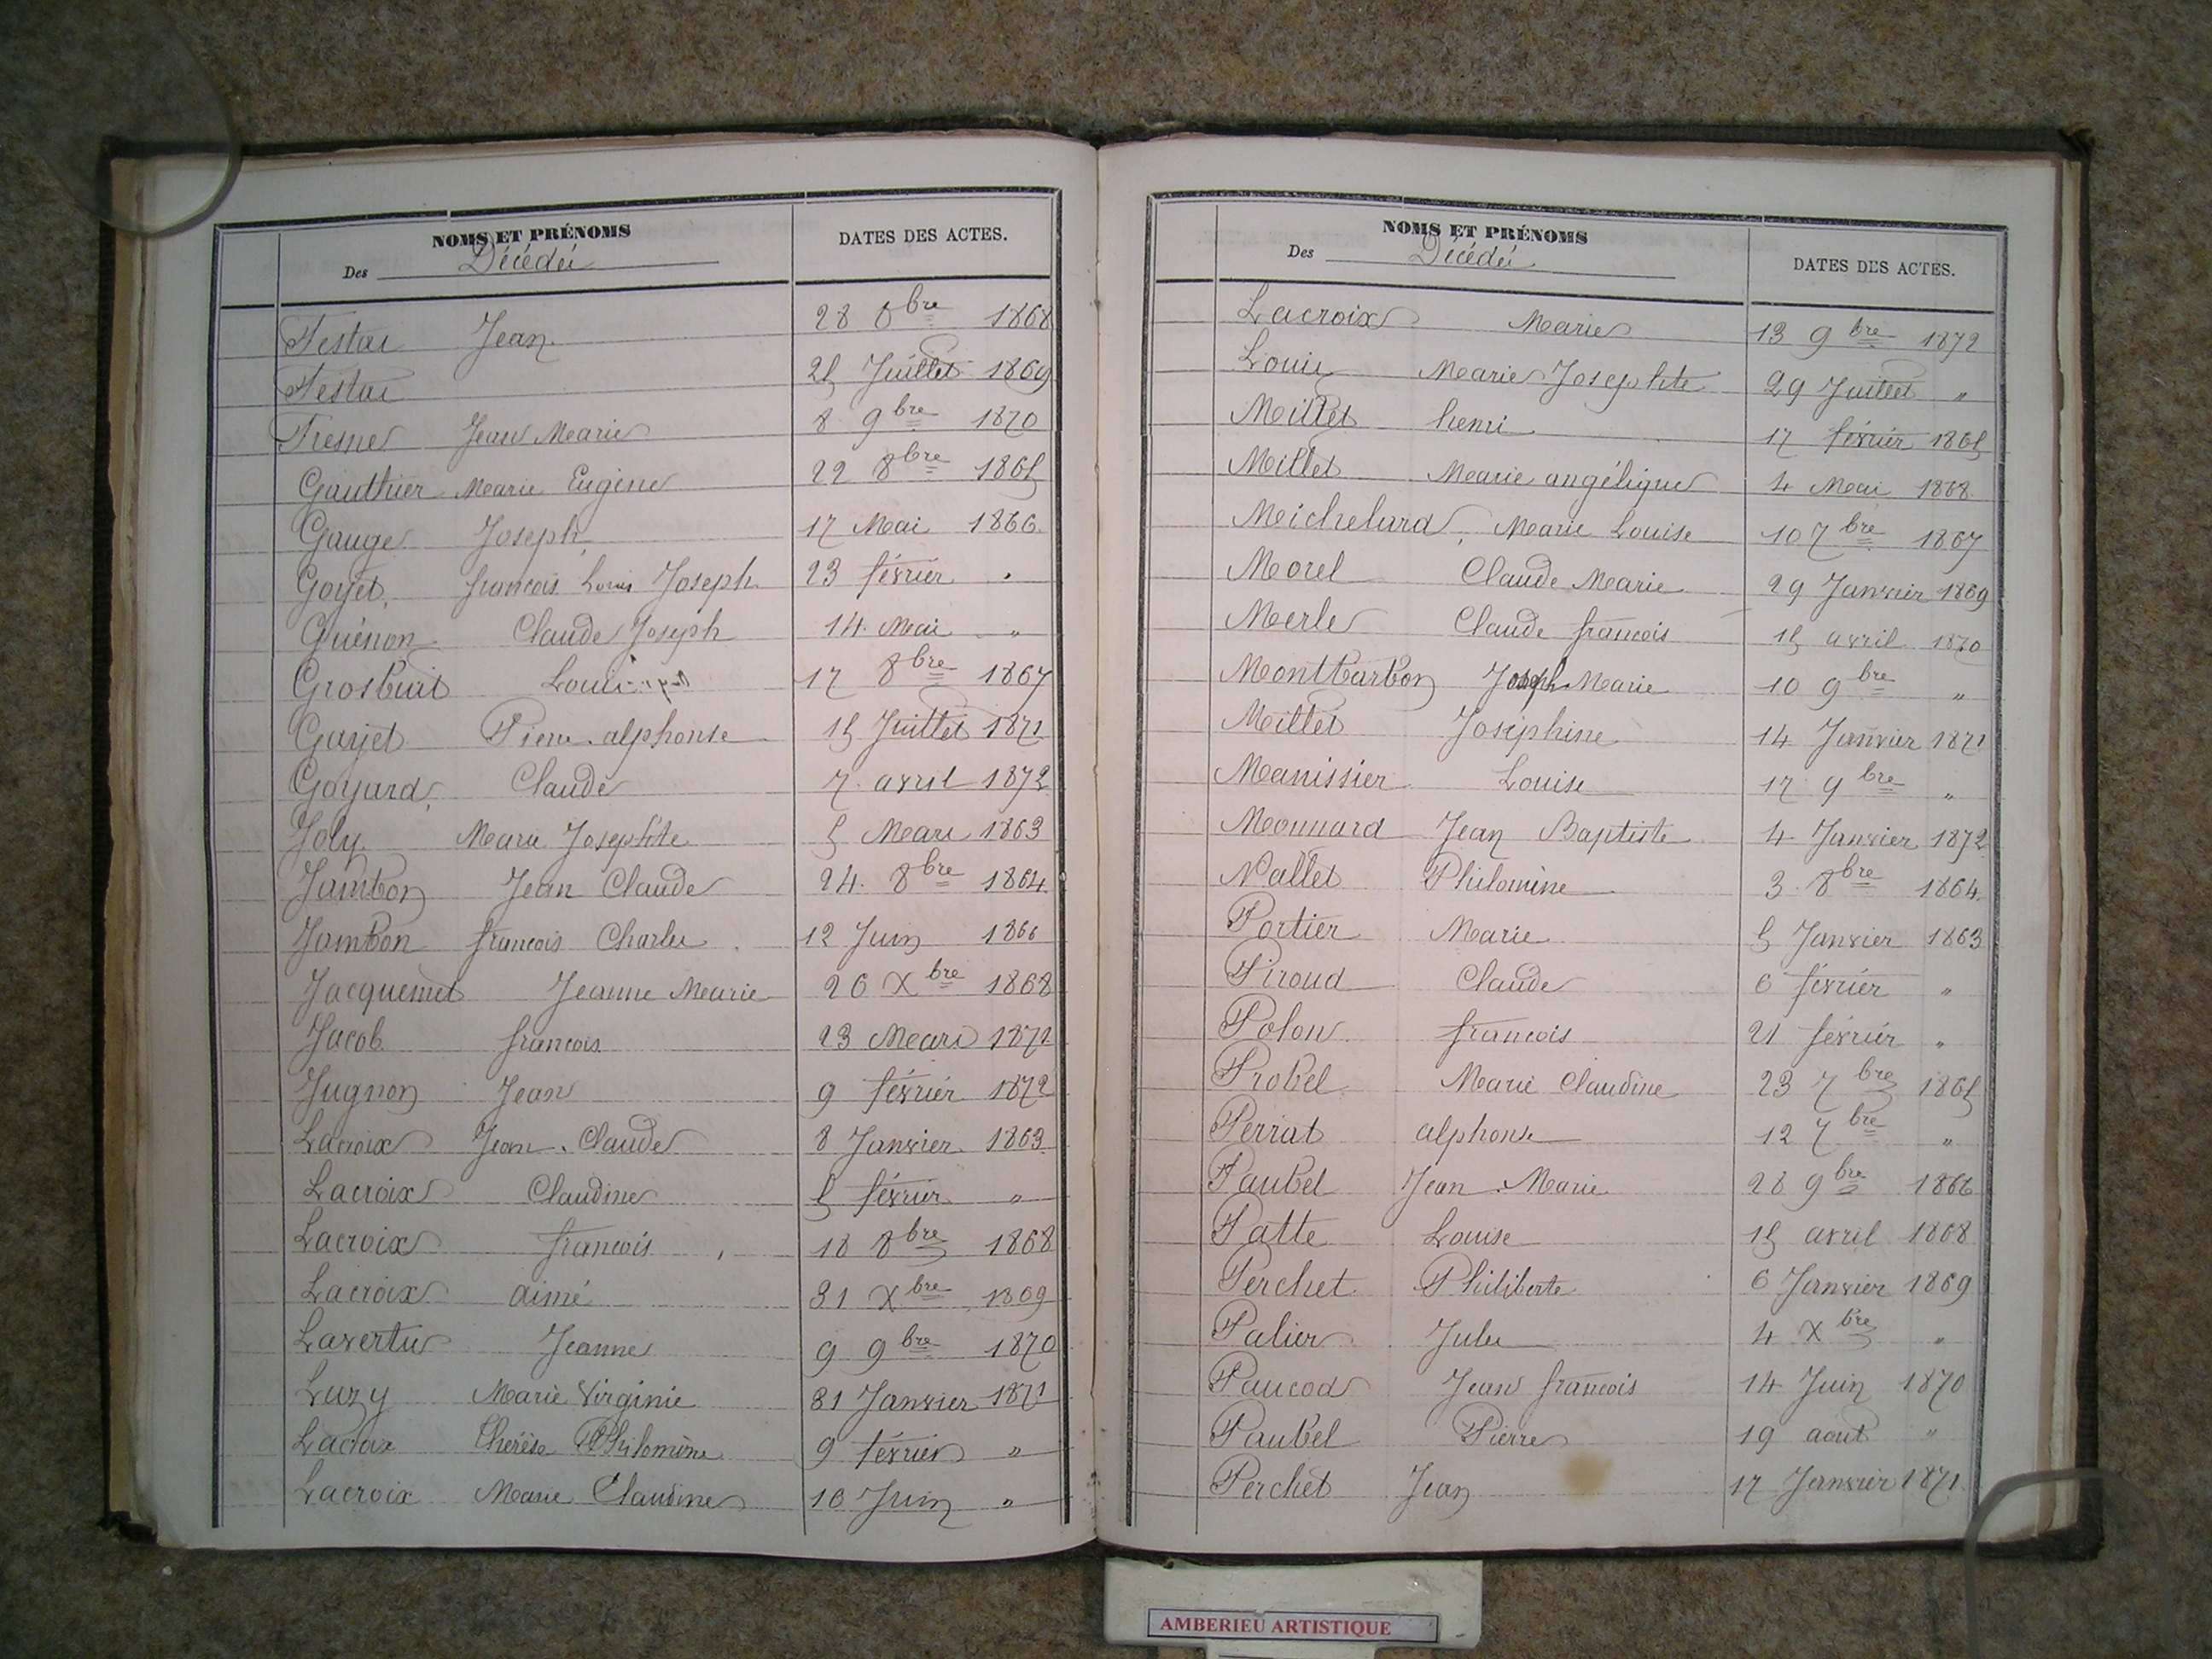 NOMS ET PRÉNOMS
Des Décédés
DATES DES ACTES.
Festas Jean 28 8bre 1868
Festas 25 Juillet 1869
Fresne Jean Marie 8 9bre 1870
Gauthier Marie Eugène 22 8bre 1865
Gauge Joseph 17 Mai 1866
Goyet francois Louis Joseph 23 février "
Guénon Claude Joseph 14 Mai "
Grosbuit Louis 17 8bre 1867
Goyet Pierre alphonse 15 Juillet 1871
Goyard Claude 7 avril 1872
Joly Marie Josephte 5 Mars 1863
Jambon Jean Claude 24 8bre 1864
Jambon francois Charles 12 Juin 1866
Jacquemet Jeanne Marie 26 Xbre 1868
Jacob francois 23 Mars 1871
Jugnon Jean 9 février 1872
Lacroix Jean Claude 8 Janvier 1863
Lacroix Claudine 5 février "
Lacroix francois 18 8bre 1868
Lacroix aimé 31 Xbre 1869
Lavertus Jeanne 9 9bre 1870
Luzy Marie Virginie 31 Janvier 1871
Lacroix Thérèse Philomène 9 février "
Lacroix Marie Claudine 16 Juin "
NOMS ET PRÉNOMS
Des Décédés
DATES DES ACTES.
Lacroix Marie 13 9bre 1872
Louis Marie Josephte 29 Juillet "
Millet henri 17 février 1865
Millet Marie angélique 4 Mai 1868
Michelard Marie Louise 10 7bre 1867
Morel Claude Marie 29 Janvier 1869
Merle Claude francois 15 avril 1870
Montbarbon Joseph Marie 10 9bre "
Millet Joséphine 14 Janvier 1871
Manissier Louise 17 9bre "
Monnard Jean Baptiste 4 Janvier 1872
Nallet Philomine 3 8bre 1864
Portier Marie 5 Janvier 1863
Piroud Claude 6 février "
Polon francois 21 février "
Probel Marie Claudine 23 7bre 1865
Perrat alphonse 12 7bre "
Paubel Jean Marie 28 9bre 1866
Patte Louise 15 avril 1868
Perchet Philiberte 6 Janvier 1869
Palier Jules 4 Xbre "
Paucod Jean francois 14 Juin 1870
Paubel Pierre 19 aout "
Perchet Jean 17 Janvier 1871
AMBERIEU ARTISTIQUE